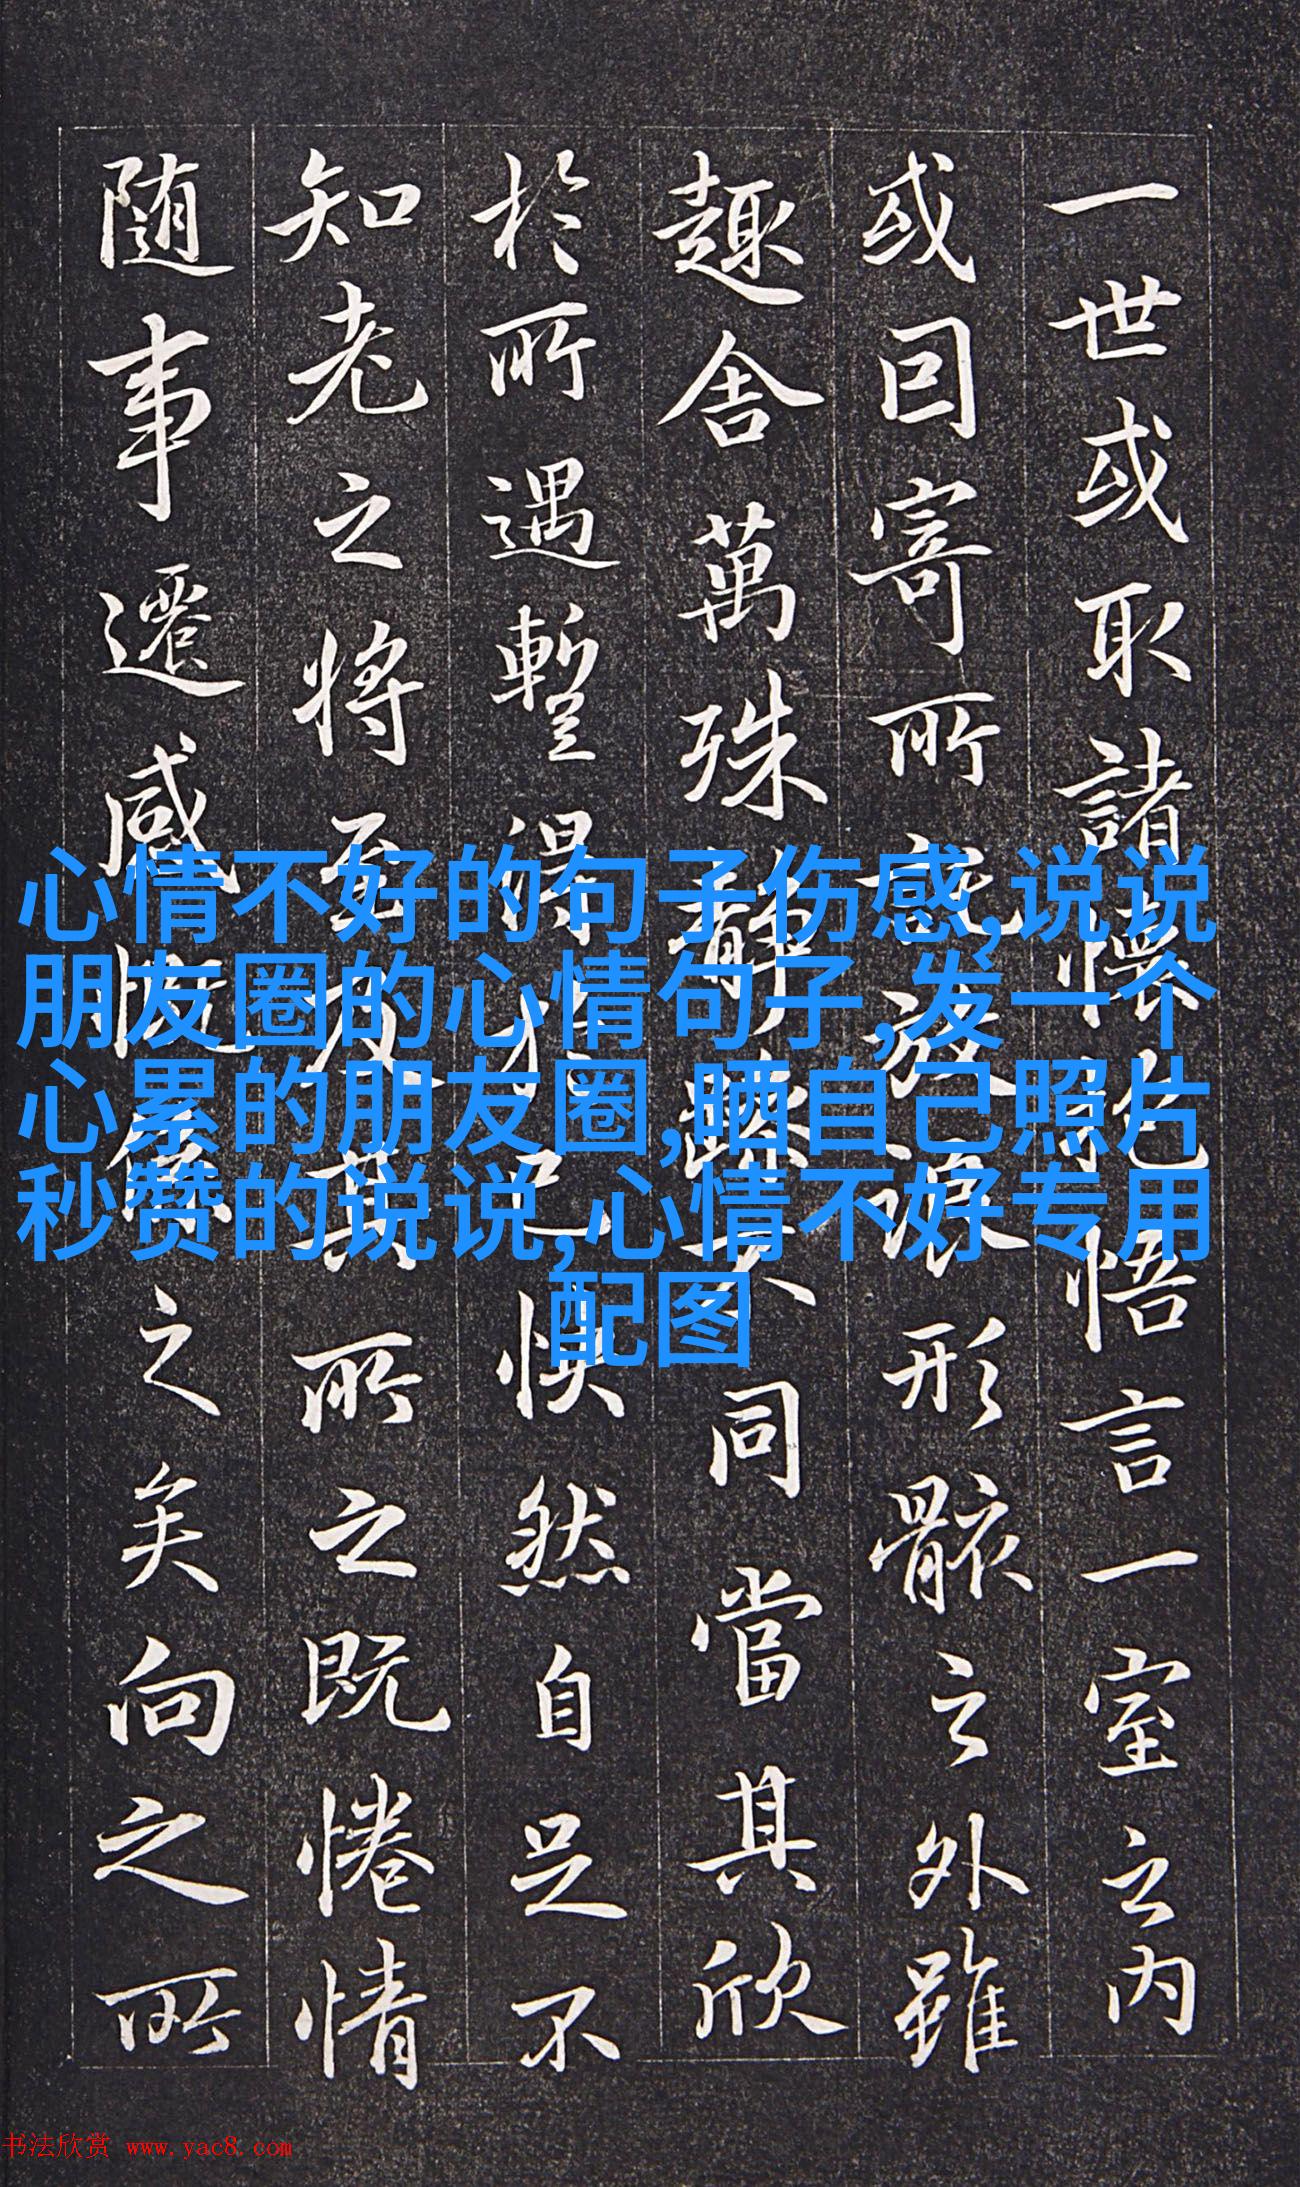 一世或取諸懷抱悟言一室之内
或因寄所託放浪形骸之外雖
趣舍萬殊靜躁不同當其欣
於所遇暫得於己快然自足不
知老之將至及其所之既惓情
随事遷感慨係之矣向之所
心情不好的句子伤感,说说
朋友圈的心情句子,发一个
心累的朋友圈,晒自己照片
秒赞的说说,心情不好专用
配图
书法欣赏 www.yac8.com